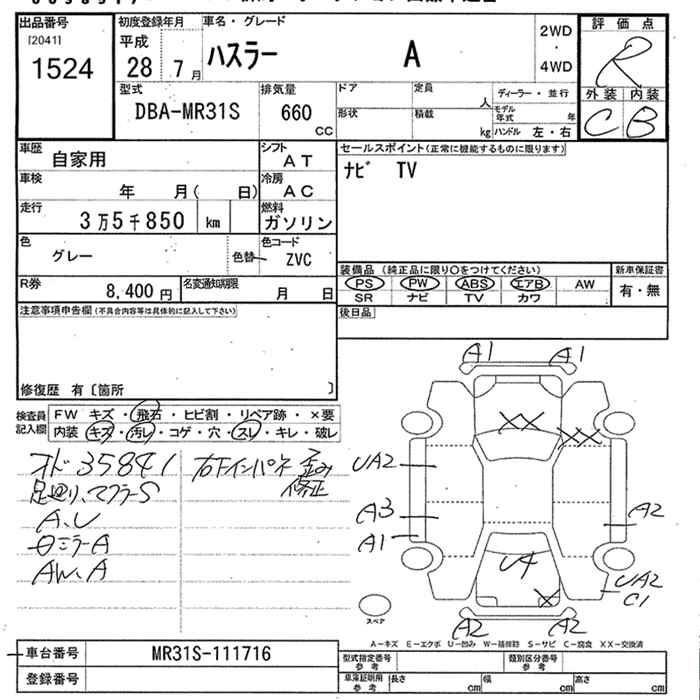 出品番号
[2041]
1524
初度登録年月
平成
28 7月
車名・グレード
ハスラー A
2WD
・
4WD
評価点
R
外装 内装
C B
型式
DBA-MR31S
排気量
660
CC
ドア
定員
人
ディーラー・並行
形状
積載
kg
モデル年式 年
ハンドル 左・右
車歴
自家用
シフト
AT
車検
年 月( 日)
冷房
AC
走行
3万5千850 km
燃料
ガソリン
色
グレー
色替
色コード
ZVC
R券
8,400円
名変通知期限
月 日
セールスポイント(正常に機能するものに限ります)
ナビ TV
装備品(純正品に限り○をつけてください)
PS PW ABS エアB AW
SR ナビ TV カワ
新車保証書
有・無
後日品
注意事項申告欄(不具合内容等は具体的に記入して下さい)
修復歴 有〔箇所 〕
検査員記入欄
FW キズ・飛石・ヒビ割・リペア跡・×要
内装 キズ・汚レ・コゲ・穴・スレ・キレ・破レ
オド35841
足廻り、マフラーS
A、U
ミラーA
AW、A
右下インパネ歪み
修正
A1 A1
XX
XX
UA2
A3
A1
A2
U4
X
UA2
C1
A2 A2
スペア
A-キズ E-エクボ U-凹み W-補修跡 S-サビ C-腐食 XX-交換済
車台番号
MR31S-111716
登録番号
型式指定番号
参考
類別区分番号
参考
車庫証明用
参考
長さ cm 幅 cm 高さ cm